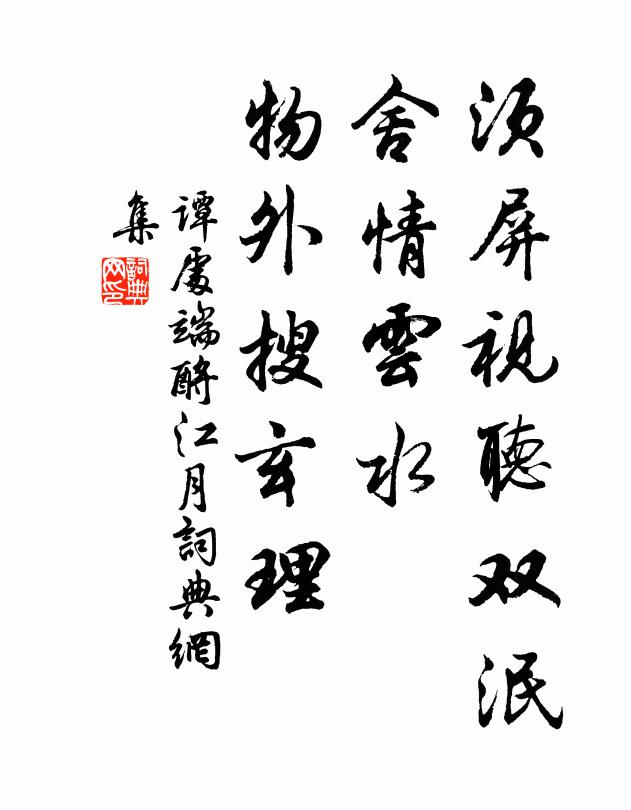 须屏視聽双泯
舍情雲水
物外搜玄理
譚處端酹江月詞典網
集
詞典網印